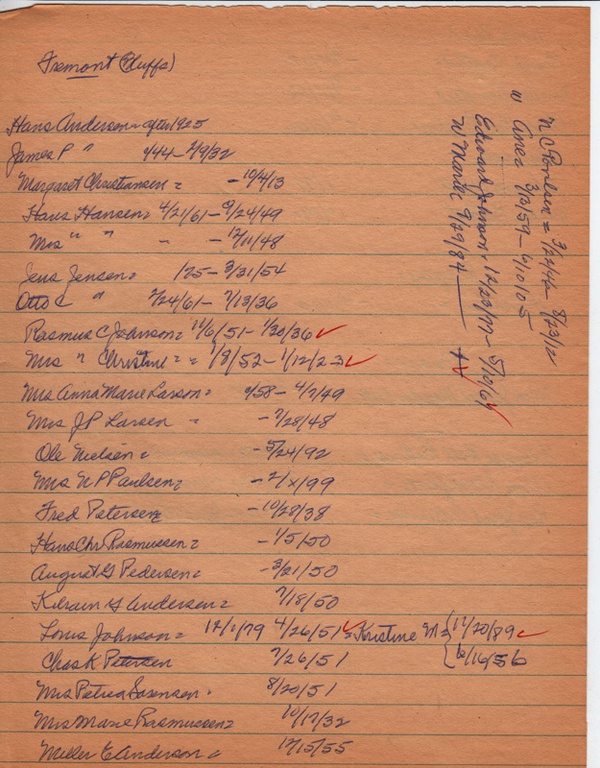 Fremont (Bluffs)
Hans Anderson = after 1925
James P " 4/44 - 2/9/32
Margaret Christiansen = - 10/4/13
Hans Hansen = 4/21/61 - 9/24/49
Mrs " " - - 12/11/48
Jens Jensen = 1/25 - 3/31/54
Otto C " 2/24/61 - 7/13/36
Rasmus C Johnson = 11/6/51 - 1/30/36 ✓
Mrs " Christine " = 1/8/52 - 1/12/23 ✓
Mrs Anna Marie Larson = 4/58 - 4/7/49
Mrs J P Larsen - 7/28/48
Ole Nielsen = - 5/24/92
Mrs N P Paulsen = - 2/x/99
Fred Petersen = - 10/28/38
Hans Chr Rasmussen = - 1/5/50
August G Pedersen = - 3/21/50
G Andersen = 7/18/50
Louis Johnson = 12/1/79 4/26/51 ✓ = Kristine M = { 11/20/89 ✓
{ 6/16/56
Chas K Petersen 7/26/51
Mrs Petrea Sorensen = 8/20/51
Mrs Marie Rasmussen = 10/17/32
Miller E Anderson = 12/15/55
N C Poulsen = 3/22/46 8/23/12
w Ane = 3/3/59 - 6/10/05
Edward Johnson = 12/23/77 - 5/10/67 ✓
w 9/29/84 —— ✓